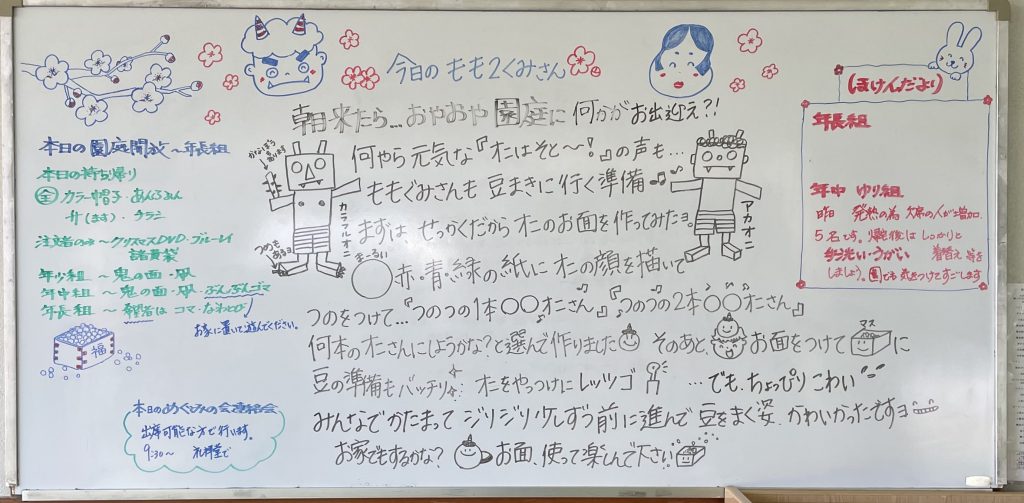 今日の もも2くみさん
朝来たら…おやおや 園庭に 何かがお出迎え?!
何やら 元気な『オにはそと〜!』の声も…
ももぐみさんも 豆まきに行く準備♪♫
まずは せっかくだから オニのお面を作ってみたョ
まーるい
○赤・青・緑の紙に オニの顔を描いて
つのをつけて…『つのつの1本○○オニさん』『つのつの2本○○オニさん』
何本のオニさんにしようかな?と選んで作りました そのあと、お面をつけて
マス
に
豆の準備もバッチリ オニをやっつけにレッツゴー …でも、ちょっぴりこわい
みんなでかたまって ジリジリ少しずつ前に進んで 豆をまく姿、かわいかったですョ
お家でもするかな? お面、使って楽しんで下さい
カラフルオニ
つめも
あるョ
アカオニ
本日の園庭開放〜年長組
本日の持ち帰り
全 カラー帽子・あんろえん
升(ます)・チラシ
注文者のみ〜クリスマスDVD・ブルーレイ
諸費袋
年少組 〜鬼の面・凧
年中組 〜鬼の面・凧 ぶんぶんゴマ
年長組 〜 希望者は コマ・なわとび
お家に置いて遊んでください。
福
本日のめぐみの会連絡会
出席可能な方で行います。
9:30〜 礼拝堂で
ほけんだより
年長組
年中 ゆり組
昨日 発熱の為 欠席の人が増加
5名です。帰宅後は しっかりと
手洗い・うがい 着替え 等を
しましょう。園でも 気をつけてすごします